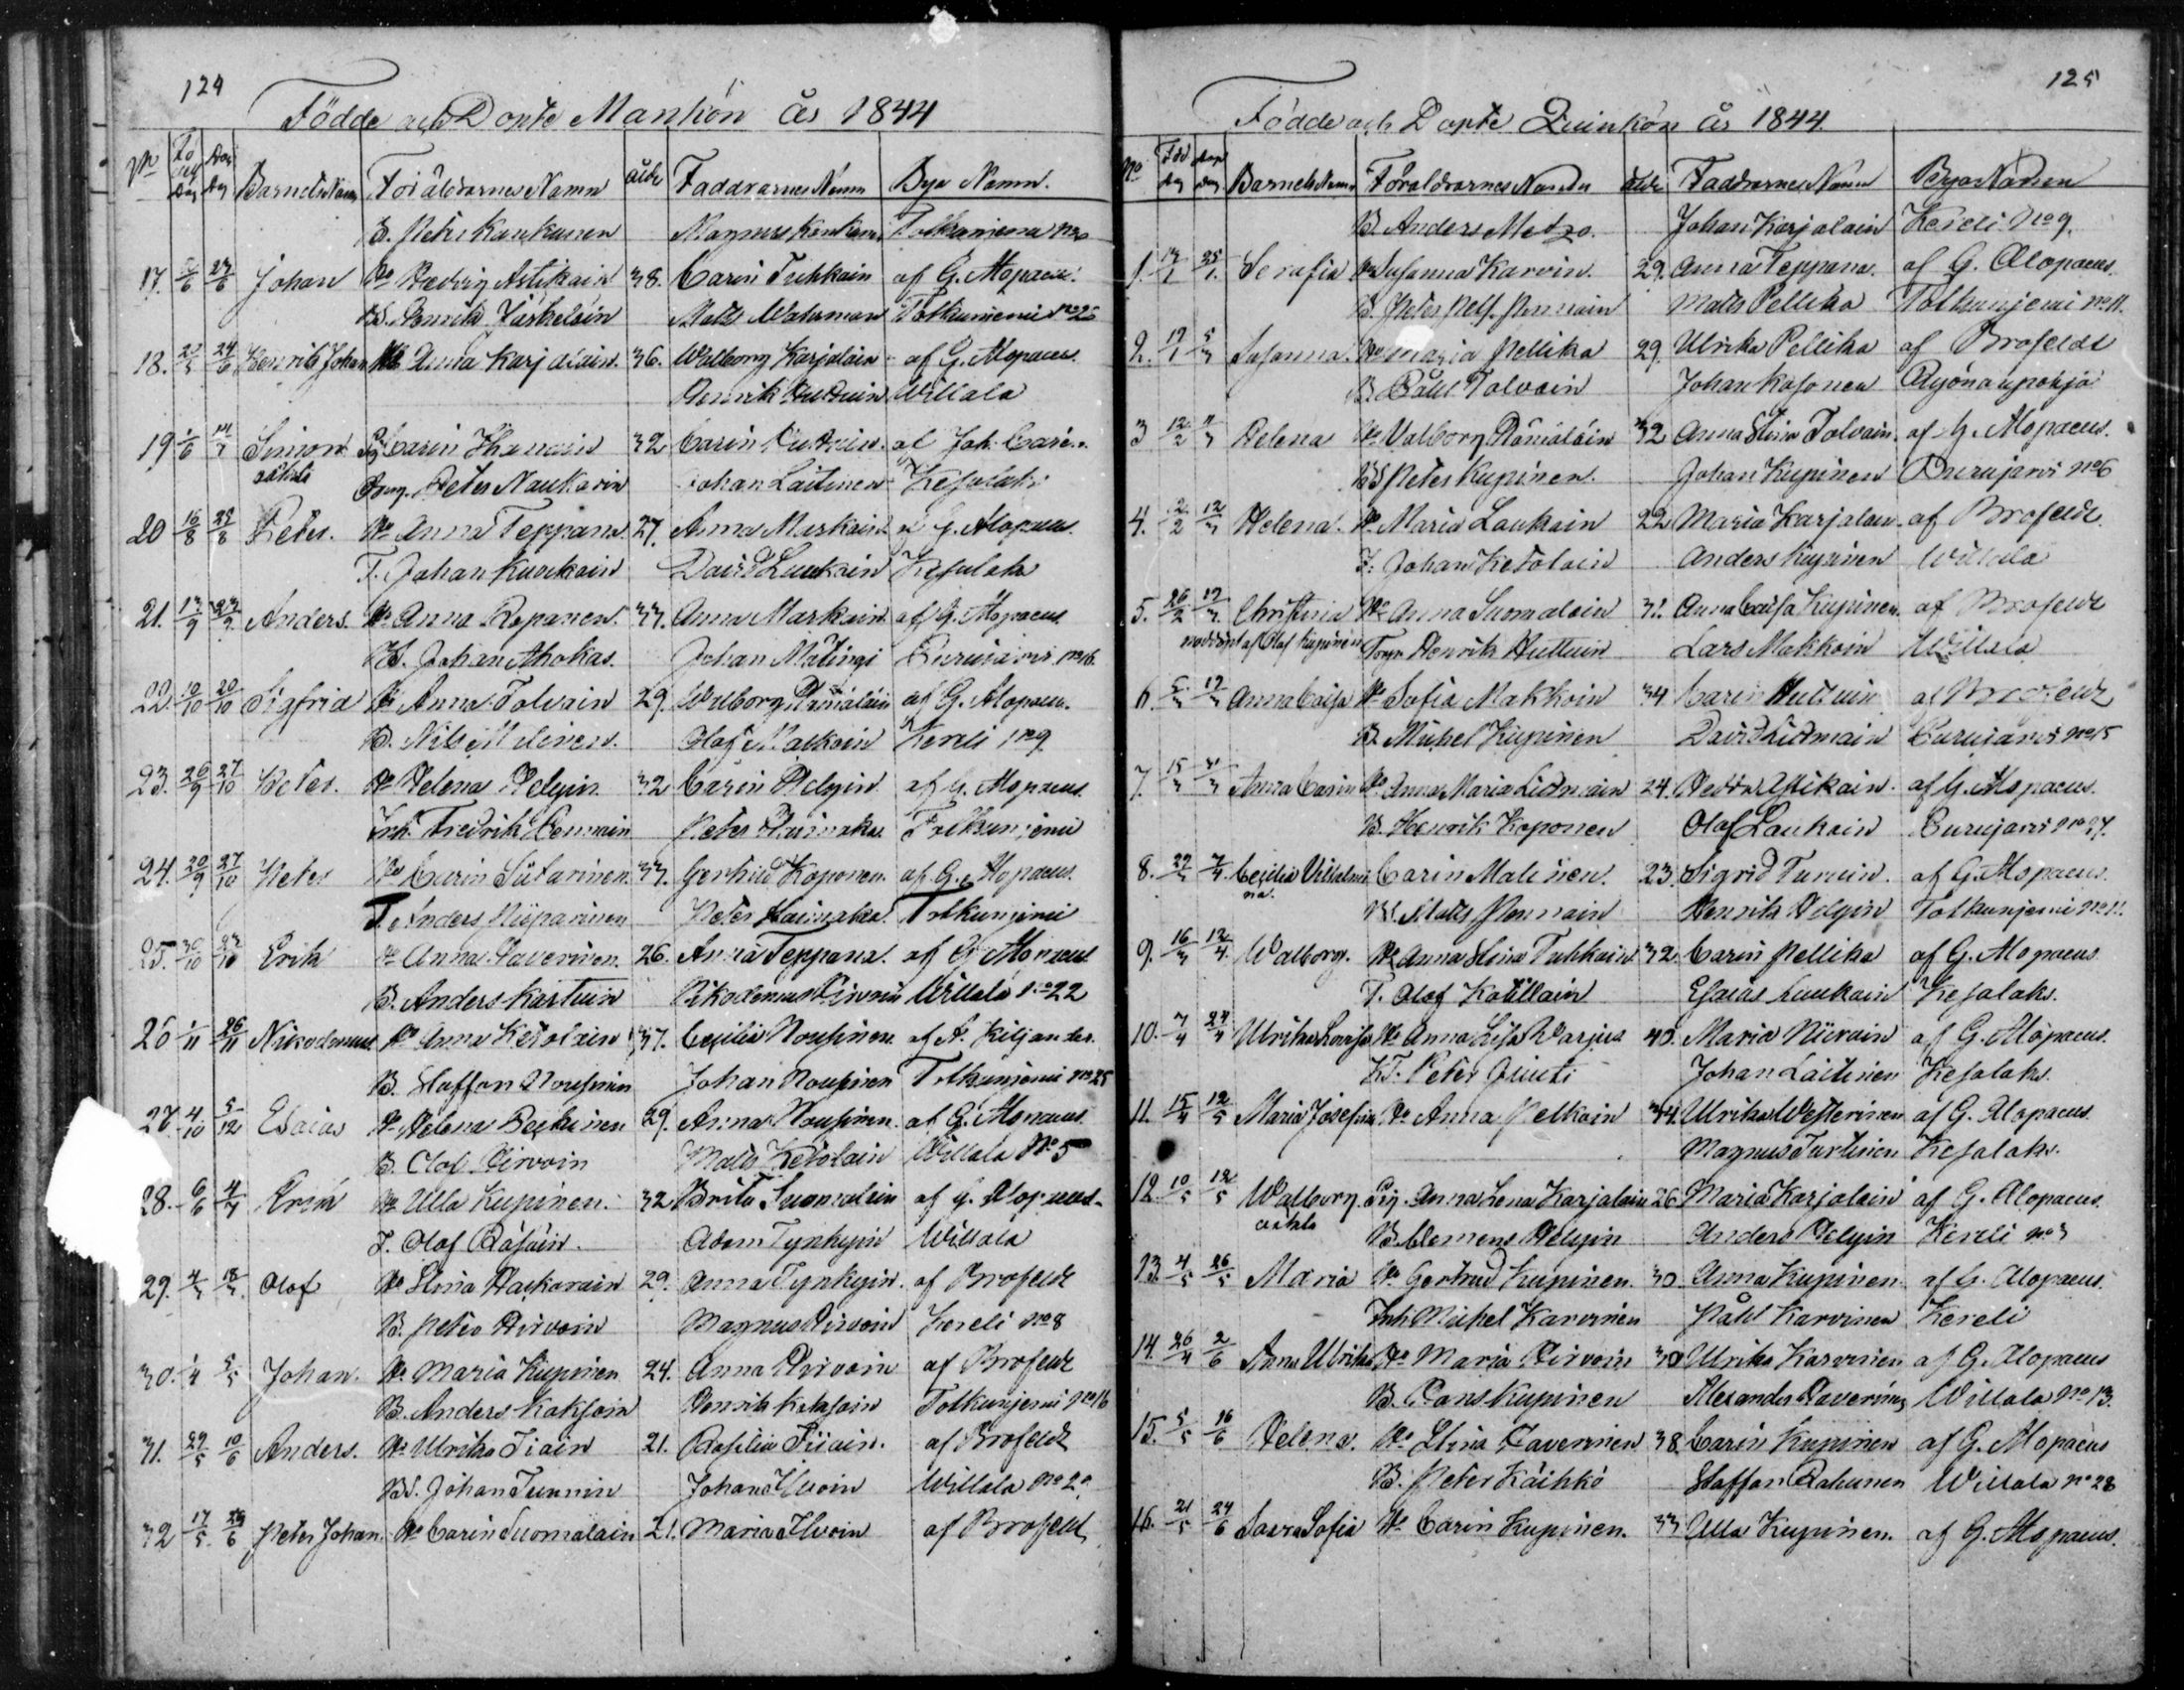 124
Födde och Döpte Mankön År 1844
No Barnets Namn Föräldrarnes Namn ålder Faddrarnes Namn Bya Namn.
B. Peter Kaukunen Magnus Kaukunen
17. 5/6 23/6 Johan Ho Hedvig Astikain 38. Carin Tuhkain af G. Alopaeus.
Henrik Jäskeläin Matts Waterman Totkuniemi No 26
18. 24/6 Henrik Johan Ho Anna Karjalain. 36. Walborg Karjalain af G. Alopaeus.
Henrik Huttuin Willala
19 1/6 Simon Pig. Carin 32 Carin Huttuin. af Joh. Caren.
oäkta Peter Naukarin Johan Laitinen Kesalaks
20 16/8 28/8 Peter. Ho Anna Teppana. 27. Anna Markain G. Alopaeus.
T. Johan Kuukain David Luukain Kesalaks
21. 13/9 23/9 Anders. Ho Anna Repanen. 33. Anna Markain af G. Alopaeus.
Johan Ahokas. Johan Mätingi Purujarvi No 16.
22. 10/10 20/10 Sigfrid Ho Anna Tolvain 29. Walborg Hämäläin af G. Alopaeus.
B. Nils Olof Makkoin Kereli No 9
23. 26/9 27/10 Peter. Ho Helena Helgin 32 Carin Helgin. af G. Alopaeus.
Inh. Fredrik Pennain Peter Hainaka Totkunjemi
24. 20/9 27/10 Peter Ho Carin Siitarinen. 33. Gertrud Koponen. af G. Alopaeus.
T. Anders Niiparinen Peter Hainaka. Totkunjemi
25. 30/10 Erik Ho Anna Haverinen. 26. Anna Teppana. af G. Alopaeus
B. Anders Kartuin Nikodemus Hirvoin Willala No 22
26 1/11 26/11 Nikodemus. Ho Anna Ketolain 37. Cecilia Nousinen. af A. Kiljander.
B. Staffan Nousinin Johan Nousinen Totkuniemi No 25
27. 4/10 5/12 Esaias Ho Helena 29. Anna Nousinen. af G. Alopaeus.
B. Olof Hirvoin Matts Ketolain Willala No 5
28. 6/6 4/7 Ho Ulla Kupinen. 32 Brita Suomalain af G. Alopaeus.
T. Olof Räsäin. Adam Tynkyin Willala
29. Olof Ho Stina 29. Anna Tynkyin. af Brofeldt
B. Peter Hirvoin Magnus Hirvoin Kereli No 8
30. 1/4 5/5 Johan. Ho Maria Kupinen 24. Anna Hirvoin af Brofeldt
B. Anders Kaksoin Henrik Kaksoin Totkunjemi No 16
31. 29/5 10/6 Anders. Ho Ulrika Tiain 21. Basilia Tiiain. af Brofeldt
Johan Tuunin Johan Ilvoin Willala No 20.
32 17/5. 24/6 Peter Johan. Ho Carin Suomalain 21. Maria Ilvoin af Brofeldt
125
Födde och Döpte Quinkön År 1844.
No Född dag Döpt dag Barnets Namn Föräldrarnes Namn ålder Faddrarnes Namn Bya Namn
B. Anders Metzo. Johan Karjalain Kereli No 9.
1. 14/1 25/1. Serafia Ho Susanna Karvin. 29. Anna Teppana. af G. Alopaeus.
B. Peter Pennain Matts Pellika Totkunjemi No 11.
2. 17/1 5/3 Susanna. Ho Maria Pellika 29. Ulrika Pellika af Brofeldt
B. Påhl Tolvain Johan Kosonen
3 12/2 11/3 Helena Ho Valborg Hämäläin 32 Anna Stina Tolvain. af G. Alopaeus.
Peter Kupinen. Johan Kupinen Purujarvi No 6
4. 2/2 12/3 Helena. Ho Maria Laukain 22. Maria Karjalain af Brofeldt.
T. Johan Ketolain Anders Kupinen Willala
5. 26/2 17/3. Christina Ho Anna Suomalain 31. Anna Caisa Kupinen. af Brofeldt
nöddöpt af Olof Kupinen Torp. Henrik Huttuin Lars Makkoin Willala
6. 5/3 17/3 Anna Caisa Ho Sofia Makkoin 34. Carin Huttuin af Brofeldt
B. Mickel Kupinen David Lidmain Purujarvi No 15
7. 15/3 Anna Carin Ho Anna Maria Lidmain 24. Hedda Astikain. af G. Alopaeus.
B. Henrik Koponen Olof Laukain Purujarvi No 27.
8. 27/3 7/4 Cecilia Vilhelmina. Carin Malinen. 23. Sigrid Tuunin. af G. Alopaeus.
Matts Pennain Henrik Helgin Totkunjemi No 11.
9. 16/3 12/4. Walborg. Ho Anna Stina Tuhkain 32. Carin Pellika af G. Alopaeus.
T. Olof Kotillain Esaias Luukain Kesalaks.
10. 7/4 24/4 Ulrika Lovisa Ho Anna Lisa Varjus 40. Maria Niirain af G. Alopaeus.
Peter Juuti Johan Laitinen Kesalaks.
11. 15/4 12/5 Maria Josefina Ho Anna Pelkain 34. Ulrika Westerinen af G. Alopaeus.
Magnus Turtinen Kesalaks.
12. 10/5 12/5 Walborg Pig. Anna Lena Karjalain 26 Maria Karjalain af G. Alopaeus.
oäkta B. Clemens Helgin Anders Helgin Kereli No 3
13. 4/5 26/5 Maria Ho Gertrud Kupinen. 30. Anna Kupinen. af G. Alopaeus.
Inh. Mickel Karvinen Påhl Karvinen Kereli
14. 26/4 2/6 Anna Ulrika Ho Maria Hirvoin 30 Ulrika Karvinen af G. Alopaeus
B. Hans Kupinen Alexander Haverinen Willala No 13.
15. 5/5 16/6 Helena. Ho Stina Haverinen 38. Carin Kupinen af G. Alopaeus
B. Peter Käihkö Staffan Rahunen Willala No 28
16. 21/5 24/6 Saara Sofia Ho Carin Kupinen. 33 Ulla Kupinen. af G. Alopaeus.